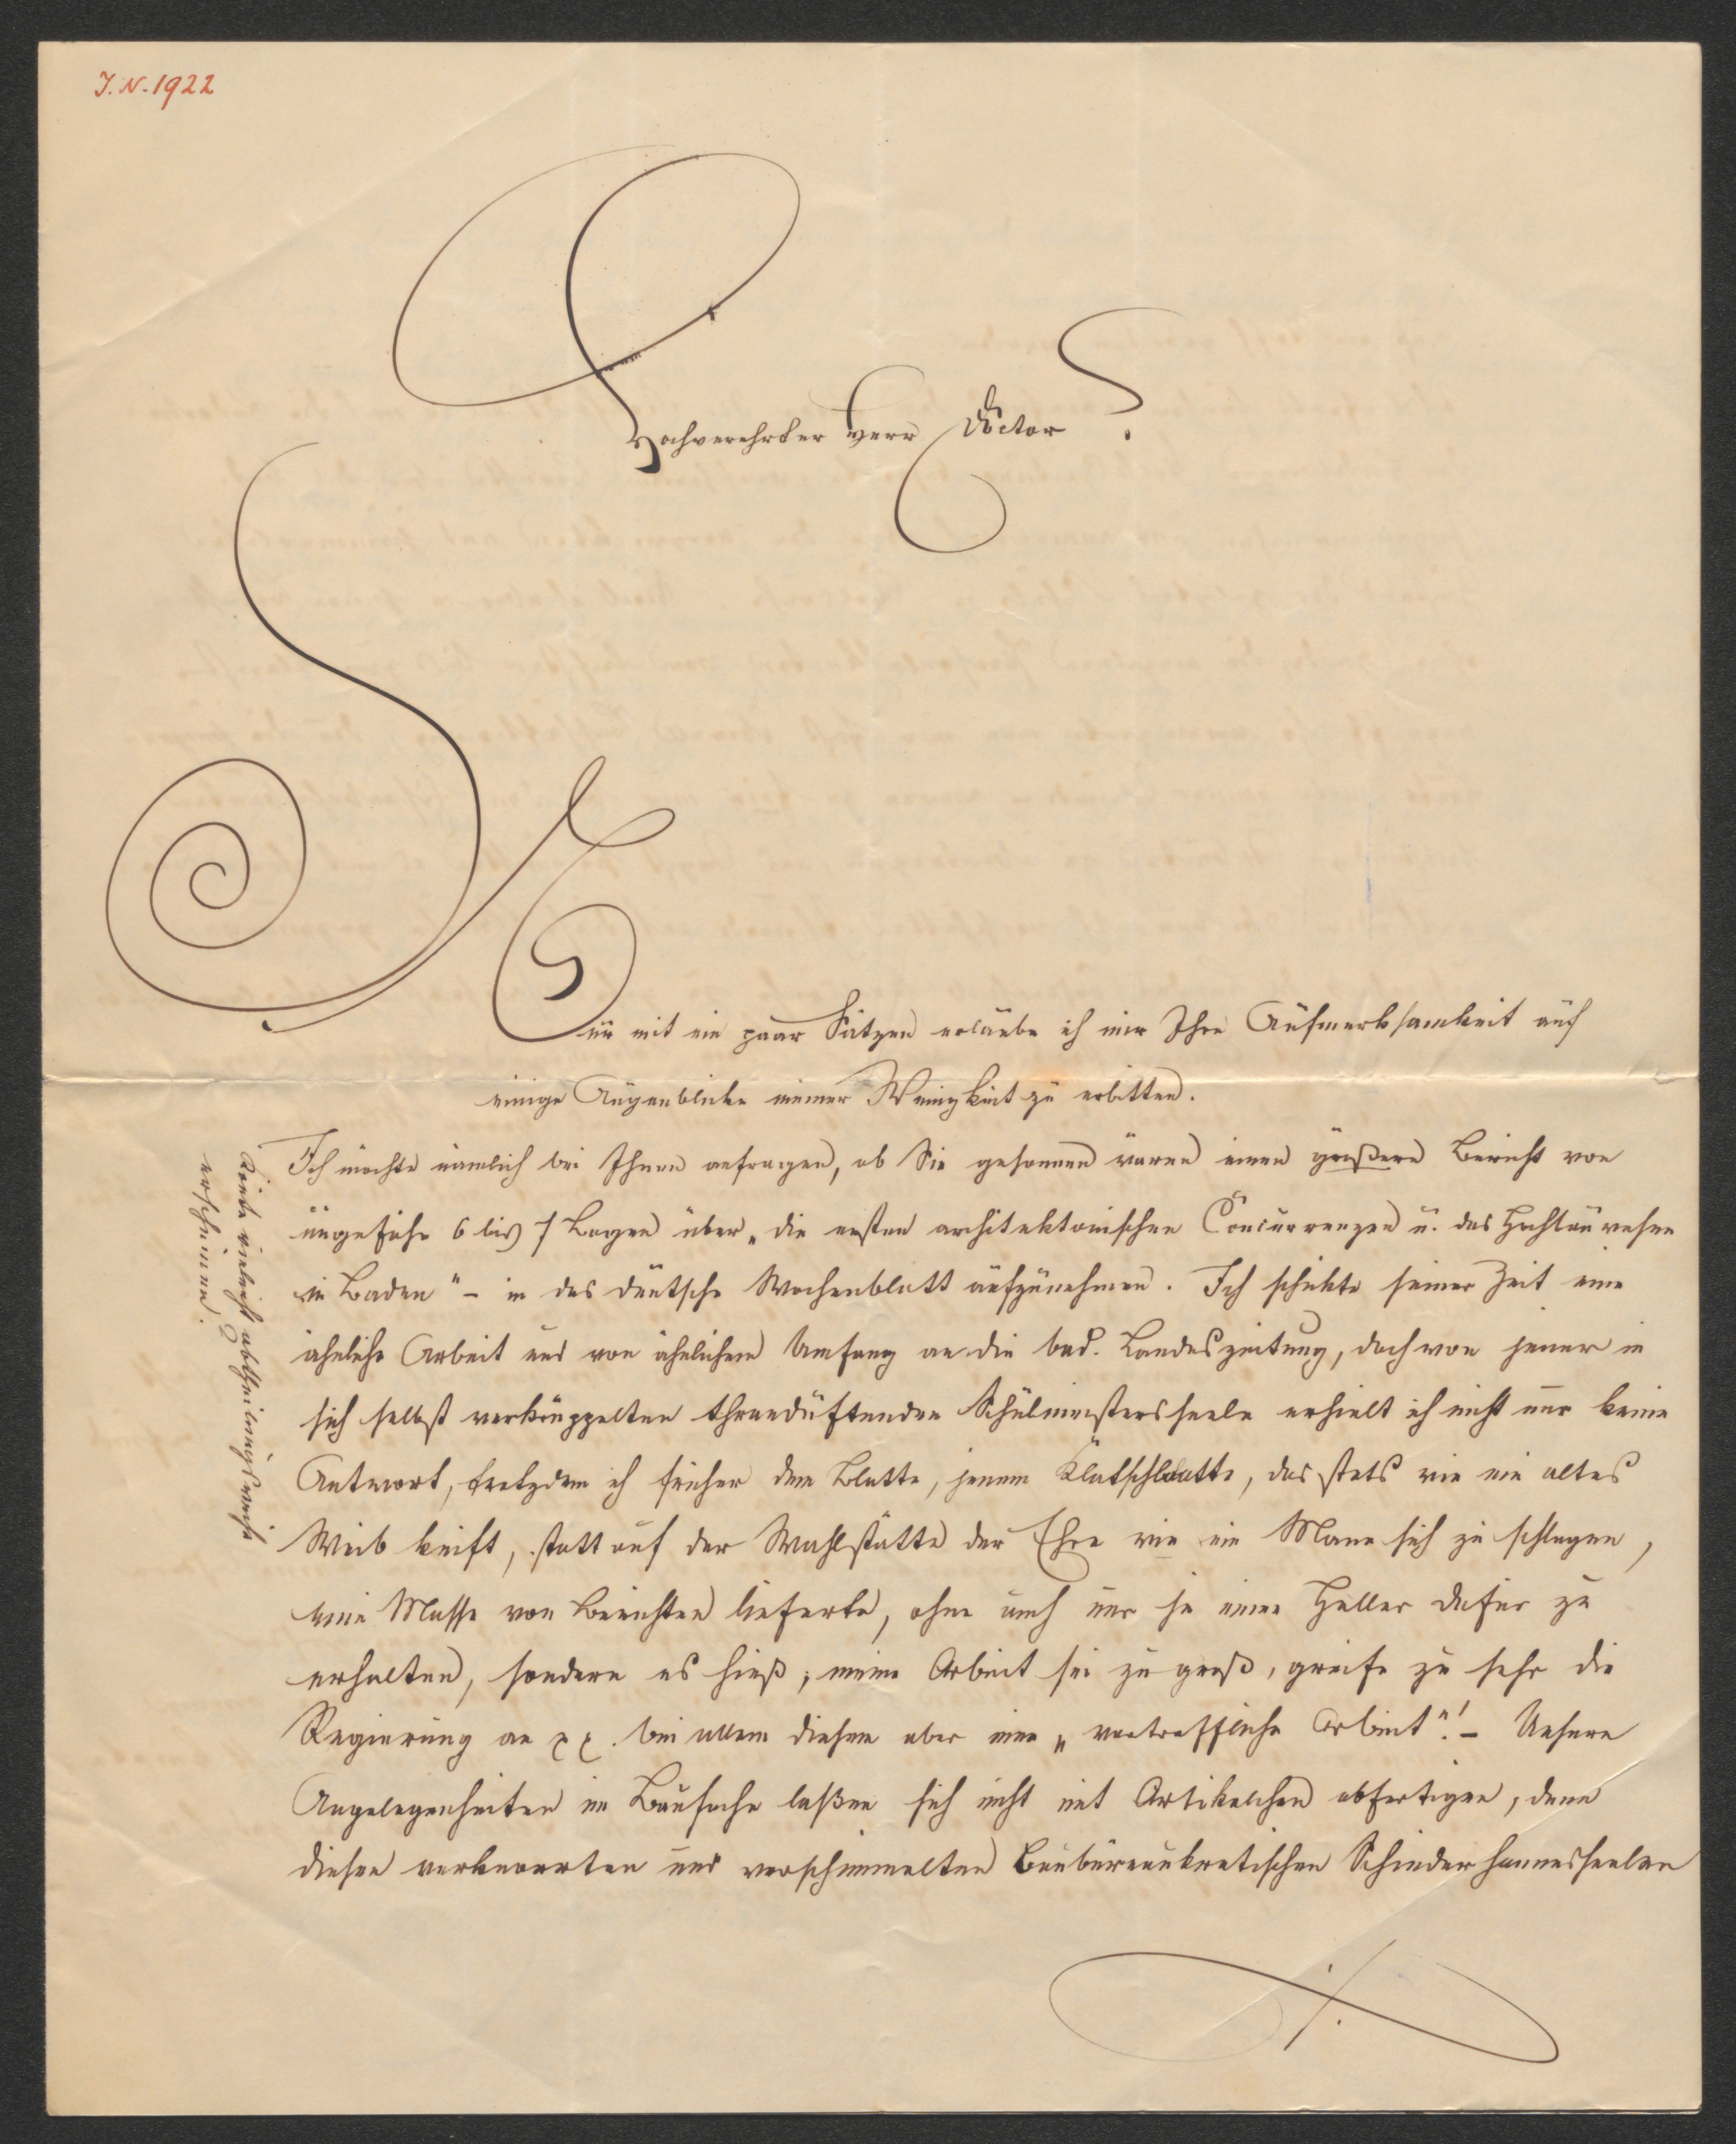 J.N. 1922
Hochverehrter Herr Doctor!
Nur mit ein paar Sätzen erlaube ich mir Ihre Aufmerksamkeit auf
einige Augenblicke meiner Wenigkeit zu erbitten.
Ich möchte nämlich bei Ihnen anfragen, ob Sie gesonnen wären einen größern Bericht von
ungefähr 6 bis 7 Bogen über „die ersten architektonischen Concurrenzen u. das Hochbauwesen
in Baden" – in das deutsche Wochenblatt aufzunehmen. Ich schikte seiner Zeit eine
ähnliche Arbeit und von ähnlichem Umfang an die bad. Landeszeitung, doch von jener in
sich selbst verkrüppelten thranduftenden Schulmeistersseele erhielt ich nicht nur keine
Antwort, trotzdem ich früher dem Blatte, jenem Klatschblatte, das stets wie ein altes
Weib keift, statt auf der Wahlstätte der Ehre wie ein Mann sich zu schlagen,
eine Masse von Berichten lieferte, ohne auch nur je einen Heller dafür zu
erhalten, sondern es hieß; meine Arbeit sei zu groß, greife zu sehr die
Regierung an bei allem diesem aber eine „vortreffliche Arbeit"! – Unsere
Angelegenheiten im Baufache laßen sich nicht mit Artikelchen abfertigen, denn
diesen verknorrten und verschimmelten baubüreaukratischen Schinderhannesseelen
Könte vieleicht abtheilungsweise
erscheinen.